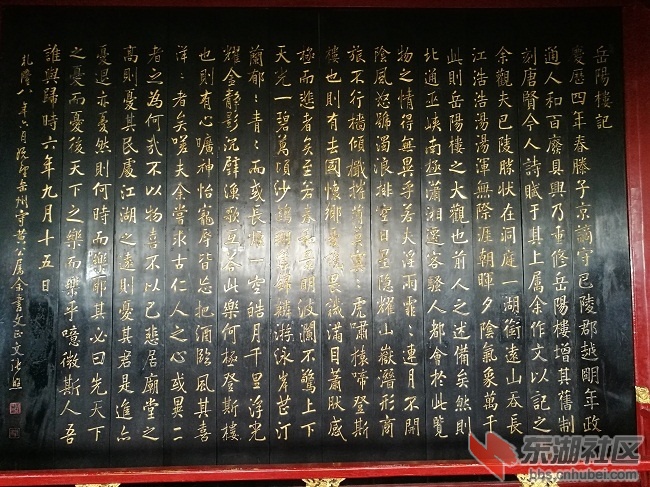 岳陽樓記
慶曆四年春滕子京謫守巴陵郡越明年政
通人和百廢具興乃重修岳陽樓增其舊制
刻唐賢今人詩賦于其上屬余作文以記之
余觀夫巴陵勝狀在洞庭一湖銜遠山吞長
江浩浩湯湯渾無際涯朝暉夕陰氣象萬千
此則岳陽樓之大觀也前人之述備矣然則
北通巫峽南極瀟湘遷客騷人都會於此覽
物之情得無異乎若夫淫雨霏:連月不開
陰風怒號濁浪排空日星隱耀山嶽潛形商
旅不行檣傾檝摧薄暮冥:虎嘯猿啼登斯
樓也則有去國懷鄉憂讒畏譏滿目蕭然感
極而悲者矣至若春和景明波瀾不驚上下
天光一碧萬頃沙鷗翔集錦鱗游泳岸芷汀
蘭郁:青:而或長煙一空皓月千里浮光
耀金靜影沉璧漁歌互答此樂何極登斯樓
也則有心曠神怡寵辱皆忘把酒臨風其喜
洋:者矣嗟夫余嘗求古仁人之心或異二
者之為何哉不以物喜不以己悲居廟堂之
高則憂其民處江湖之遠則憂其君是進亦
憂退亦憂然則何時而樂耶其必曰先天下
之憂而憂後天下之樂而樂乎噫微斯人吾
誰與歸時六年九月十五日
乾隆八年六月岳州守黃公屬余書張照
东湖社区
bbs.cnhubei.com